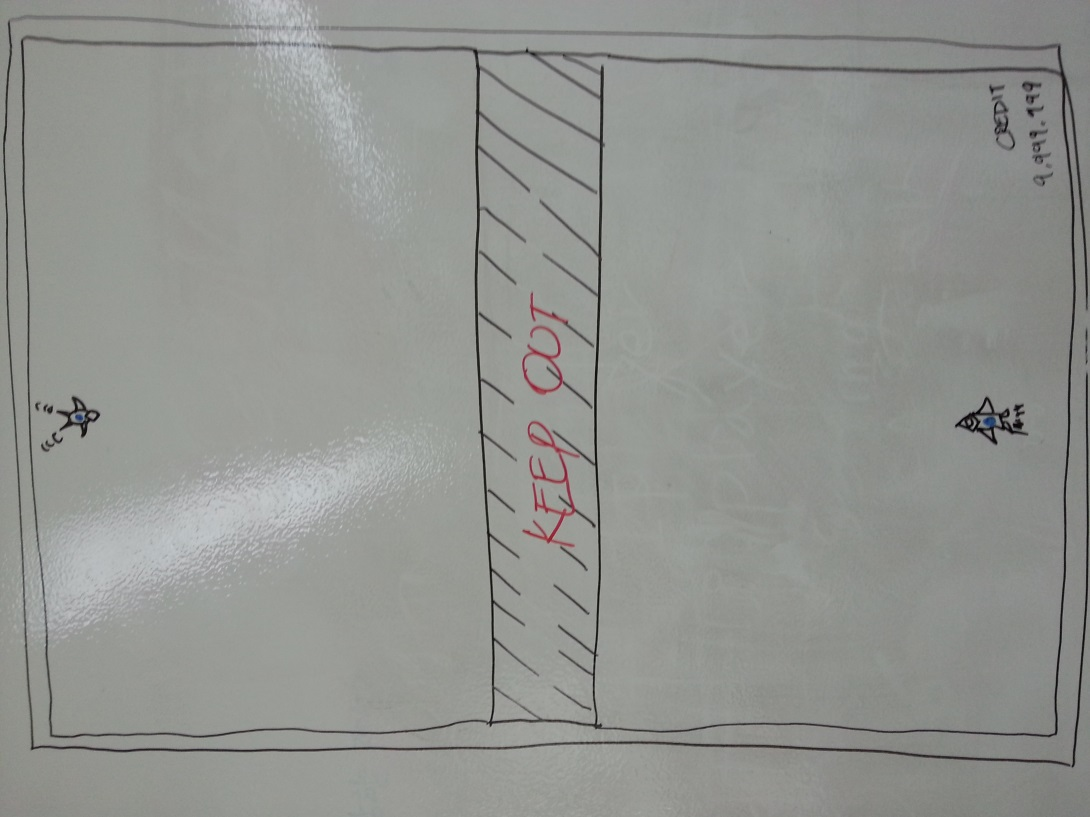 KEEP OUT
CREDIT
9.999.999